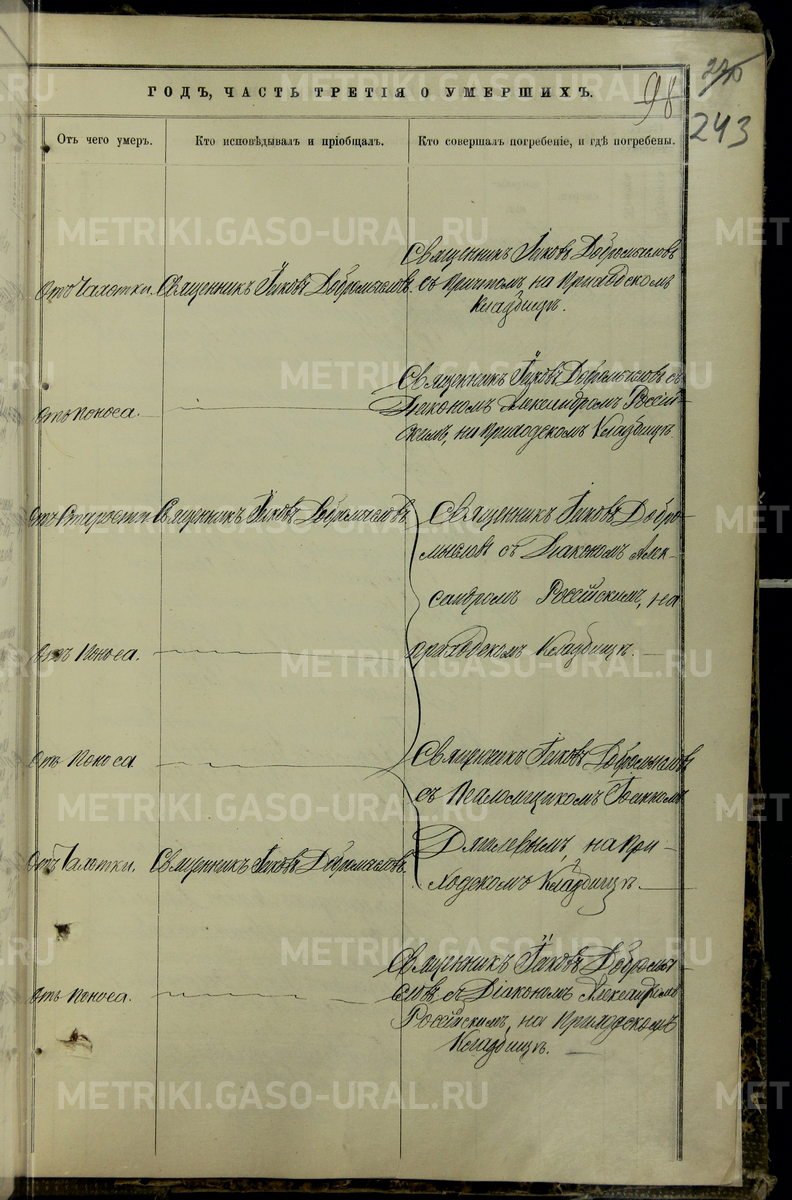 98
275
243
ГОДЪ, ЧАСТЬ ТРЕТІЯ О УМЕРШИХЪ.
Отъ чего умеръ.
Кто исповѣдывалъ и пріобщалъ.
Кто совершалъ погребеніе, и гдѣ погребены.
Отъ Чахотки.
Священникъ Іяковъ Добромысловъ.
Священникъ Іяковъ Добромысловъ
съ причтомъ на приходскомъ
Кладбищѣ.
Отъ поноса.
Священникъ Іяковъ Добромысловъ съ
Діакономъ Александромъ Россій-
скимъ, на приходскомъ Кладбищѣ.
Отъ Старости
Священникъ Іяковъ Добромысловъ
Священникъ Іяковъ Добро-
мысловъ съ Діакономъ Алек-
сандромъ Россійскимъ, на
приходскомъ Кладбищѣ.
Отъ Поноса.
Отъ Поноса
Священникъ Іяковъ Добромысловъ
съ Псаломщикомъ Іоанномъ
на при-
ходскомъ Кладбищѣ.
Отъ Чахотки.
Священникъ Іяковъ Добромысловъ.
Отъ поноса.
Священникъ Іяковъ Добромы-
словъ съ Діакономъ Александромъ
Россійскимъ, на приходскомъ
Кладбищѣ.
METRIKI.GASO-URAL.RU